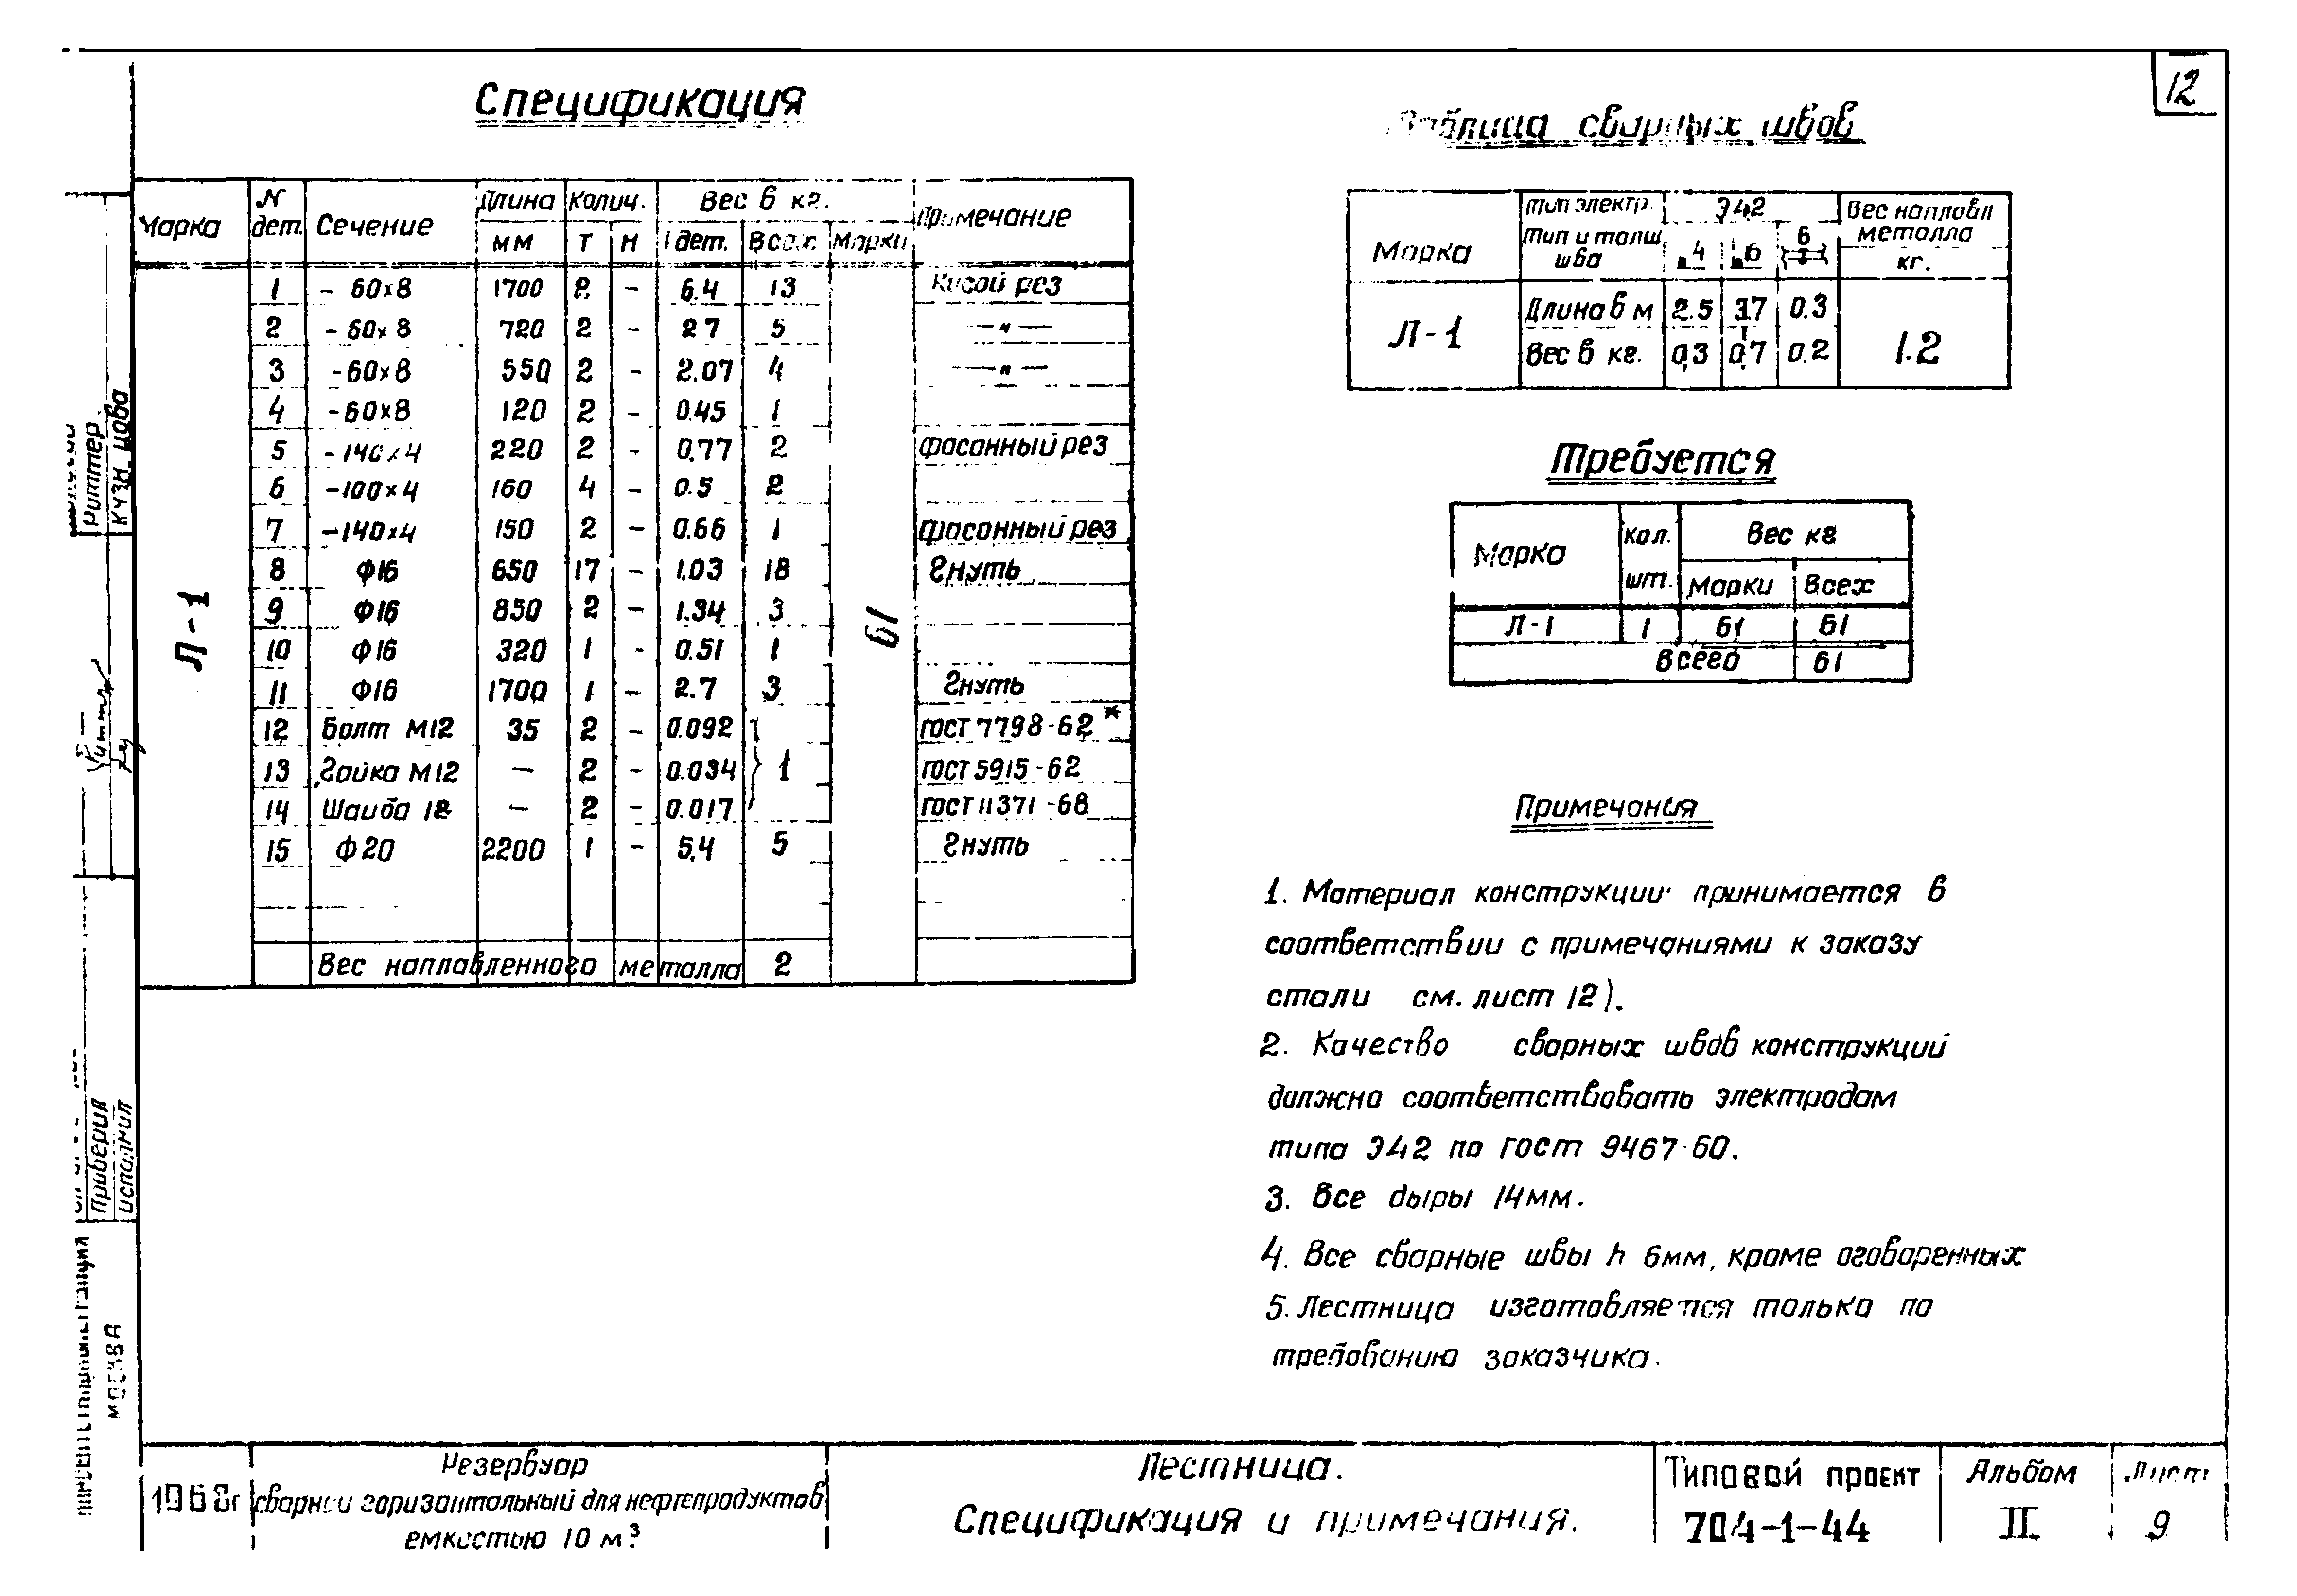 12
Спецификация
Марка N дет. Сечение Длина мм Колич. Т Н Вес в кг. 1 дет. Всех Марки Примечание
Л-1
61
1 - 60×8 1700 2 - 6.4 13 Косой рез
2 - 60×8 720 2 - 2.7 5 —"—
3 -60×8 550 2 - 2.07 4 —"—
4 -60×8 120 2 - 0.45 1
5 -140×4 220 2 - 0.77 2 фасонный рез
6 -100×4 160 4 - 0.5 2
7 -140×4 150 2 - 0.66 1 фасонный рез
8 Ф16 650 17 - 1.03 18 Гнуть
9 Ф16 850 2 - 1.34 3
10 Ф16 320 1 - 0.51 1
11 Ф16 1700 1 - 2.7 3 Гнуть
12 Болт М12 35 2 - 0.092 ГОСТ 7798-62*
13 Гайка М12 — 2 - 0.034 1 ГОСТ 5915-62
14 Шайба 12 — 2 - 0.017 ГОСТ 11371-68
15 Ф20 2200 1 - 5.4 5 Гнуть
Вес наплавленного металла 2
Таблица сварных швов
Марка Тип электр. Э42 Вес наплавл металла кг.
Тип и толщ. шва 4 6 6
Л-1 Длина в м 2.5 3.7 0.3 1.2
Вес в кг. 0,3 0,7 0.2
Требуется
Марка Кол. шт. Вес кг
Марки Всех
Л-1 1 61 61
Всего 61
Примечания
1. Материал конструкции принимается в
соответствии с примечаниями к заказу
стали см. лист 12).
2. Качество сварных швов конструкций
должно соответствовать электродам
типа Э42 по ГОСТ 9467-60.
3. Все дыры 14мм.
4. Все сварные швы h 6мм, кроме оговоренных
5. Лестница изготовляется только по
требованию заказчика.
Риттер
Проверил
Исполнил
Москва
1968г
Резервуар
сварной горизонтальный для нефтепродуктов
емкостью 10 м³
Лестница.
Спецификация и примечания.
Типовой проект
704-1-44
Альбом
II
Лист
9